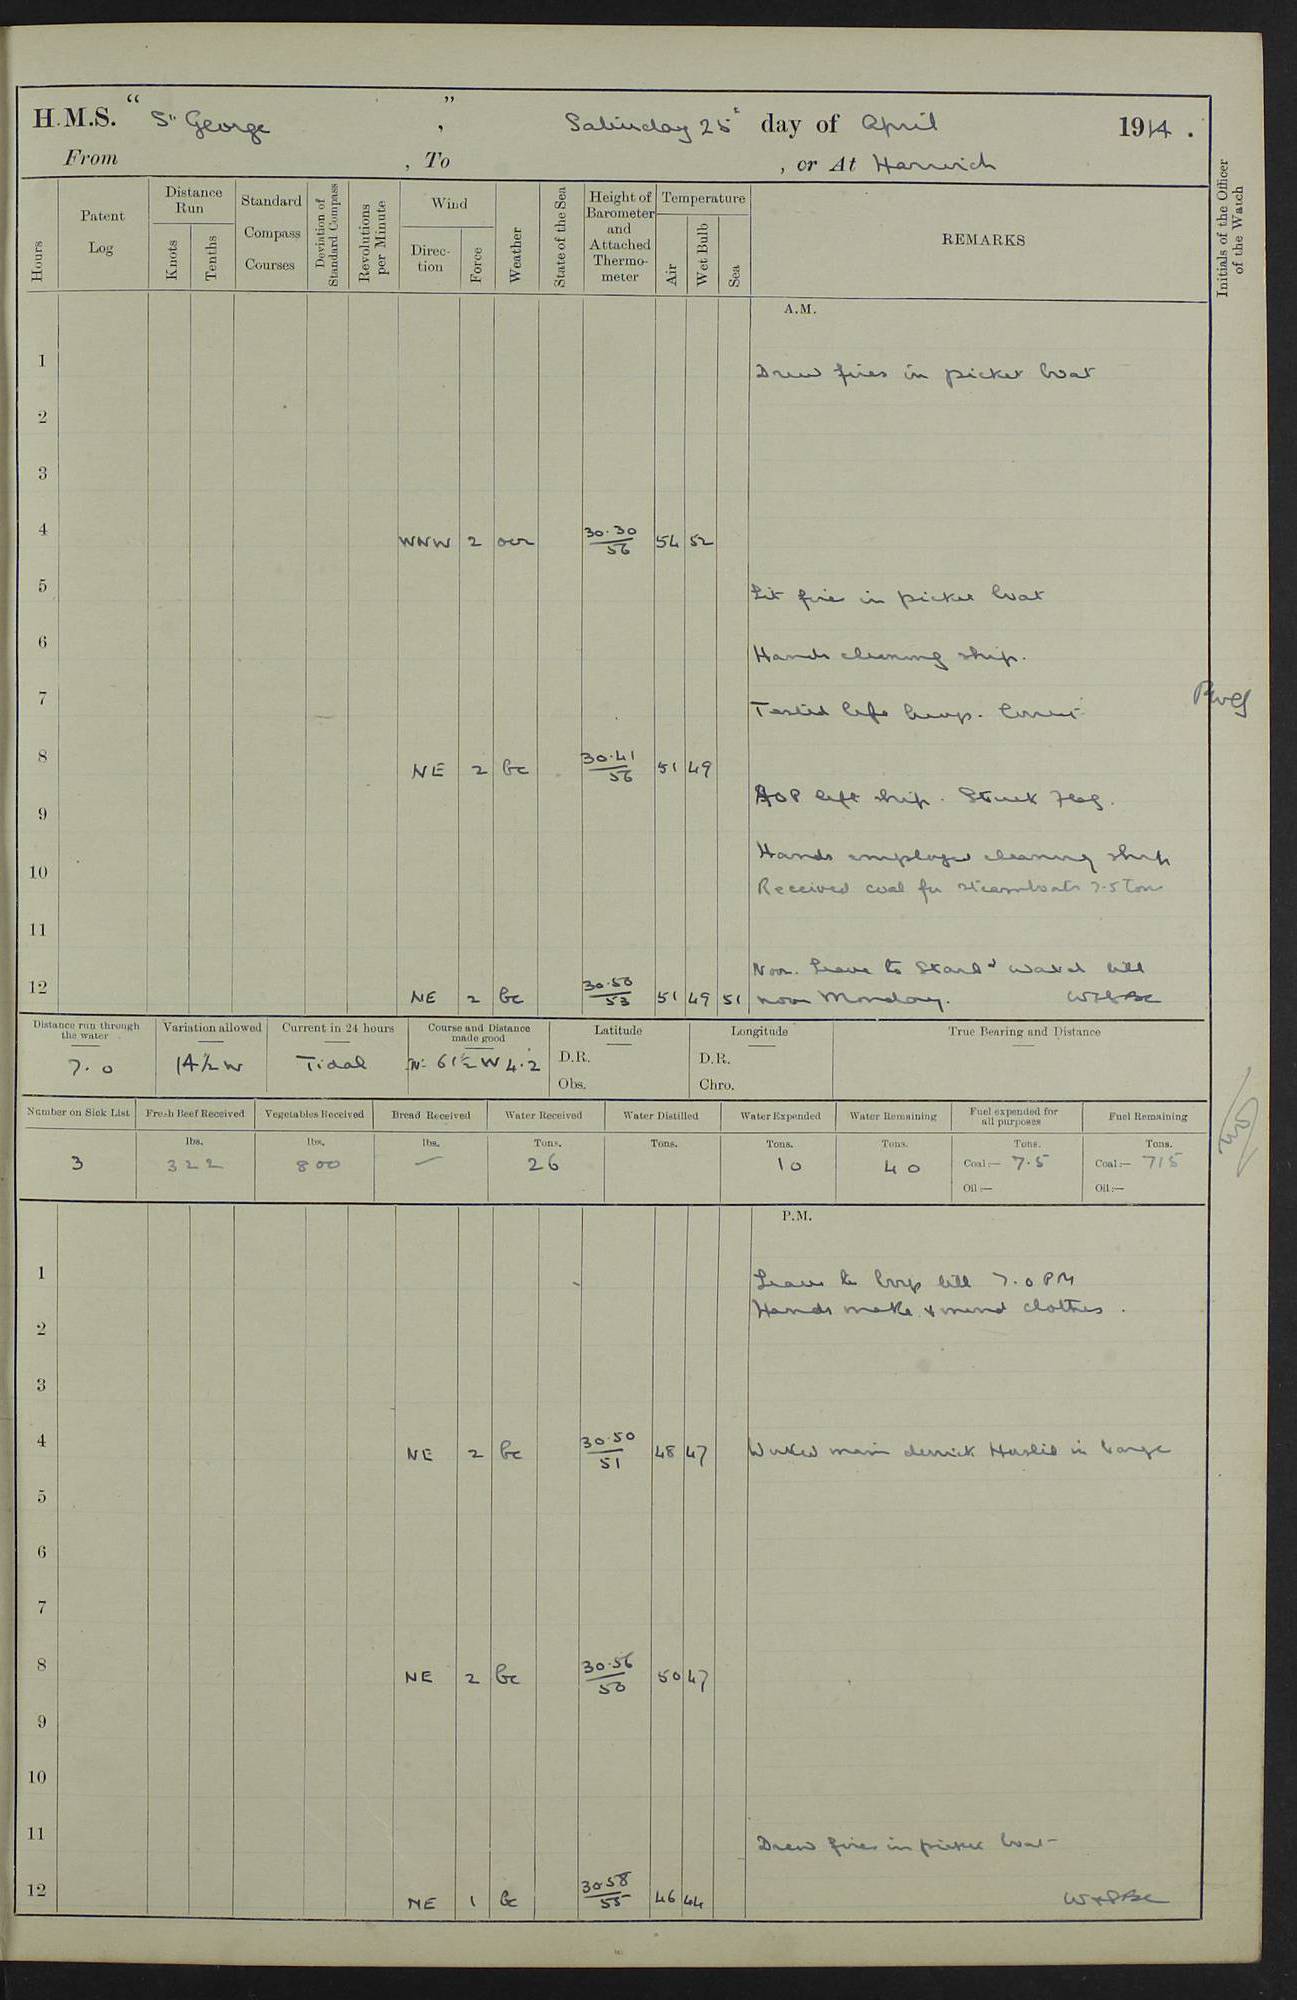 H.M.S. "St George", Saturday 25th day of April 1914.
From , To , or At Harwich
Hours
Patent Log
Distance Run
Knots
Tenths
Standard Compass Courses
Deviation of Standard Compass
Revolutions per Minute
Wind
Direction
Force
Weather
State of the Sea
Height of Barometer and Attached Thermometer
Temperature
Air
Wet Bulb
Sea
REMARKS
Initials of the Officer of the Watch
A.M.
1 Drew fires in picket boat
2
3
4 WNW 2 ocr 30.30/56 54 52
5 Lit fire in picket boat
6 Hands cleaning ship.
7 Tested life buoys. Correct
8 NE 2 bc 30.41/56 51 49
left ship. Struck Flag.
9
Hands employed cleaning ship
10
Received coal for steamboats 7.5 Tons
11
Noon. Leave to Starbd watch till
12 NE 2 bc 30.50/53 51 49 51 noon Monday.
Distance run through the water 7.0
Variation allowed 14½ W
Current in 24 hours Tidal
Course and Distance made good N 61½ W 4.2
Latitude
D.R.
Obs.
Longitude
D.R.
Chro.
True Bearing and Distance
Number on Sick List 3
Fresh Beef Received lbs. 322
Vegetables Received lbs. 800
Bread Received lbs. —
Water Received Tons. 26
Water Distilled Tons.
Water Expended Tons. 10
Water Remaining Tons. 40
Fuel expended for all purposes Tons. Coal:— 7.5 Oil:—
Fuel Remaining Tons. Coal:— 715 Oil:—
P.M.
1 Leave to boys till 7.0 PM
Hands make & mend clothes.
2
3
4 NE 2 bc 30.50/51 48 47 Worked main derrick Hoisted in barge
5
6
7
8 NE 2 bc 30.56/50 50 47
9
10
11 Drew fires in picket boat
12 NE 1 bc 30.58/55 46 44